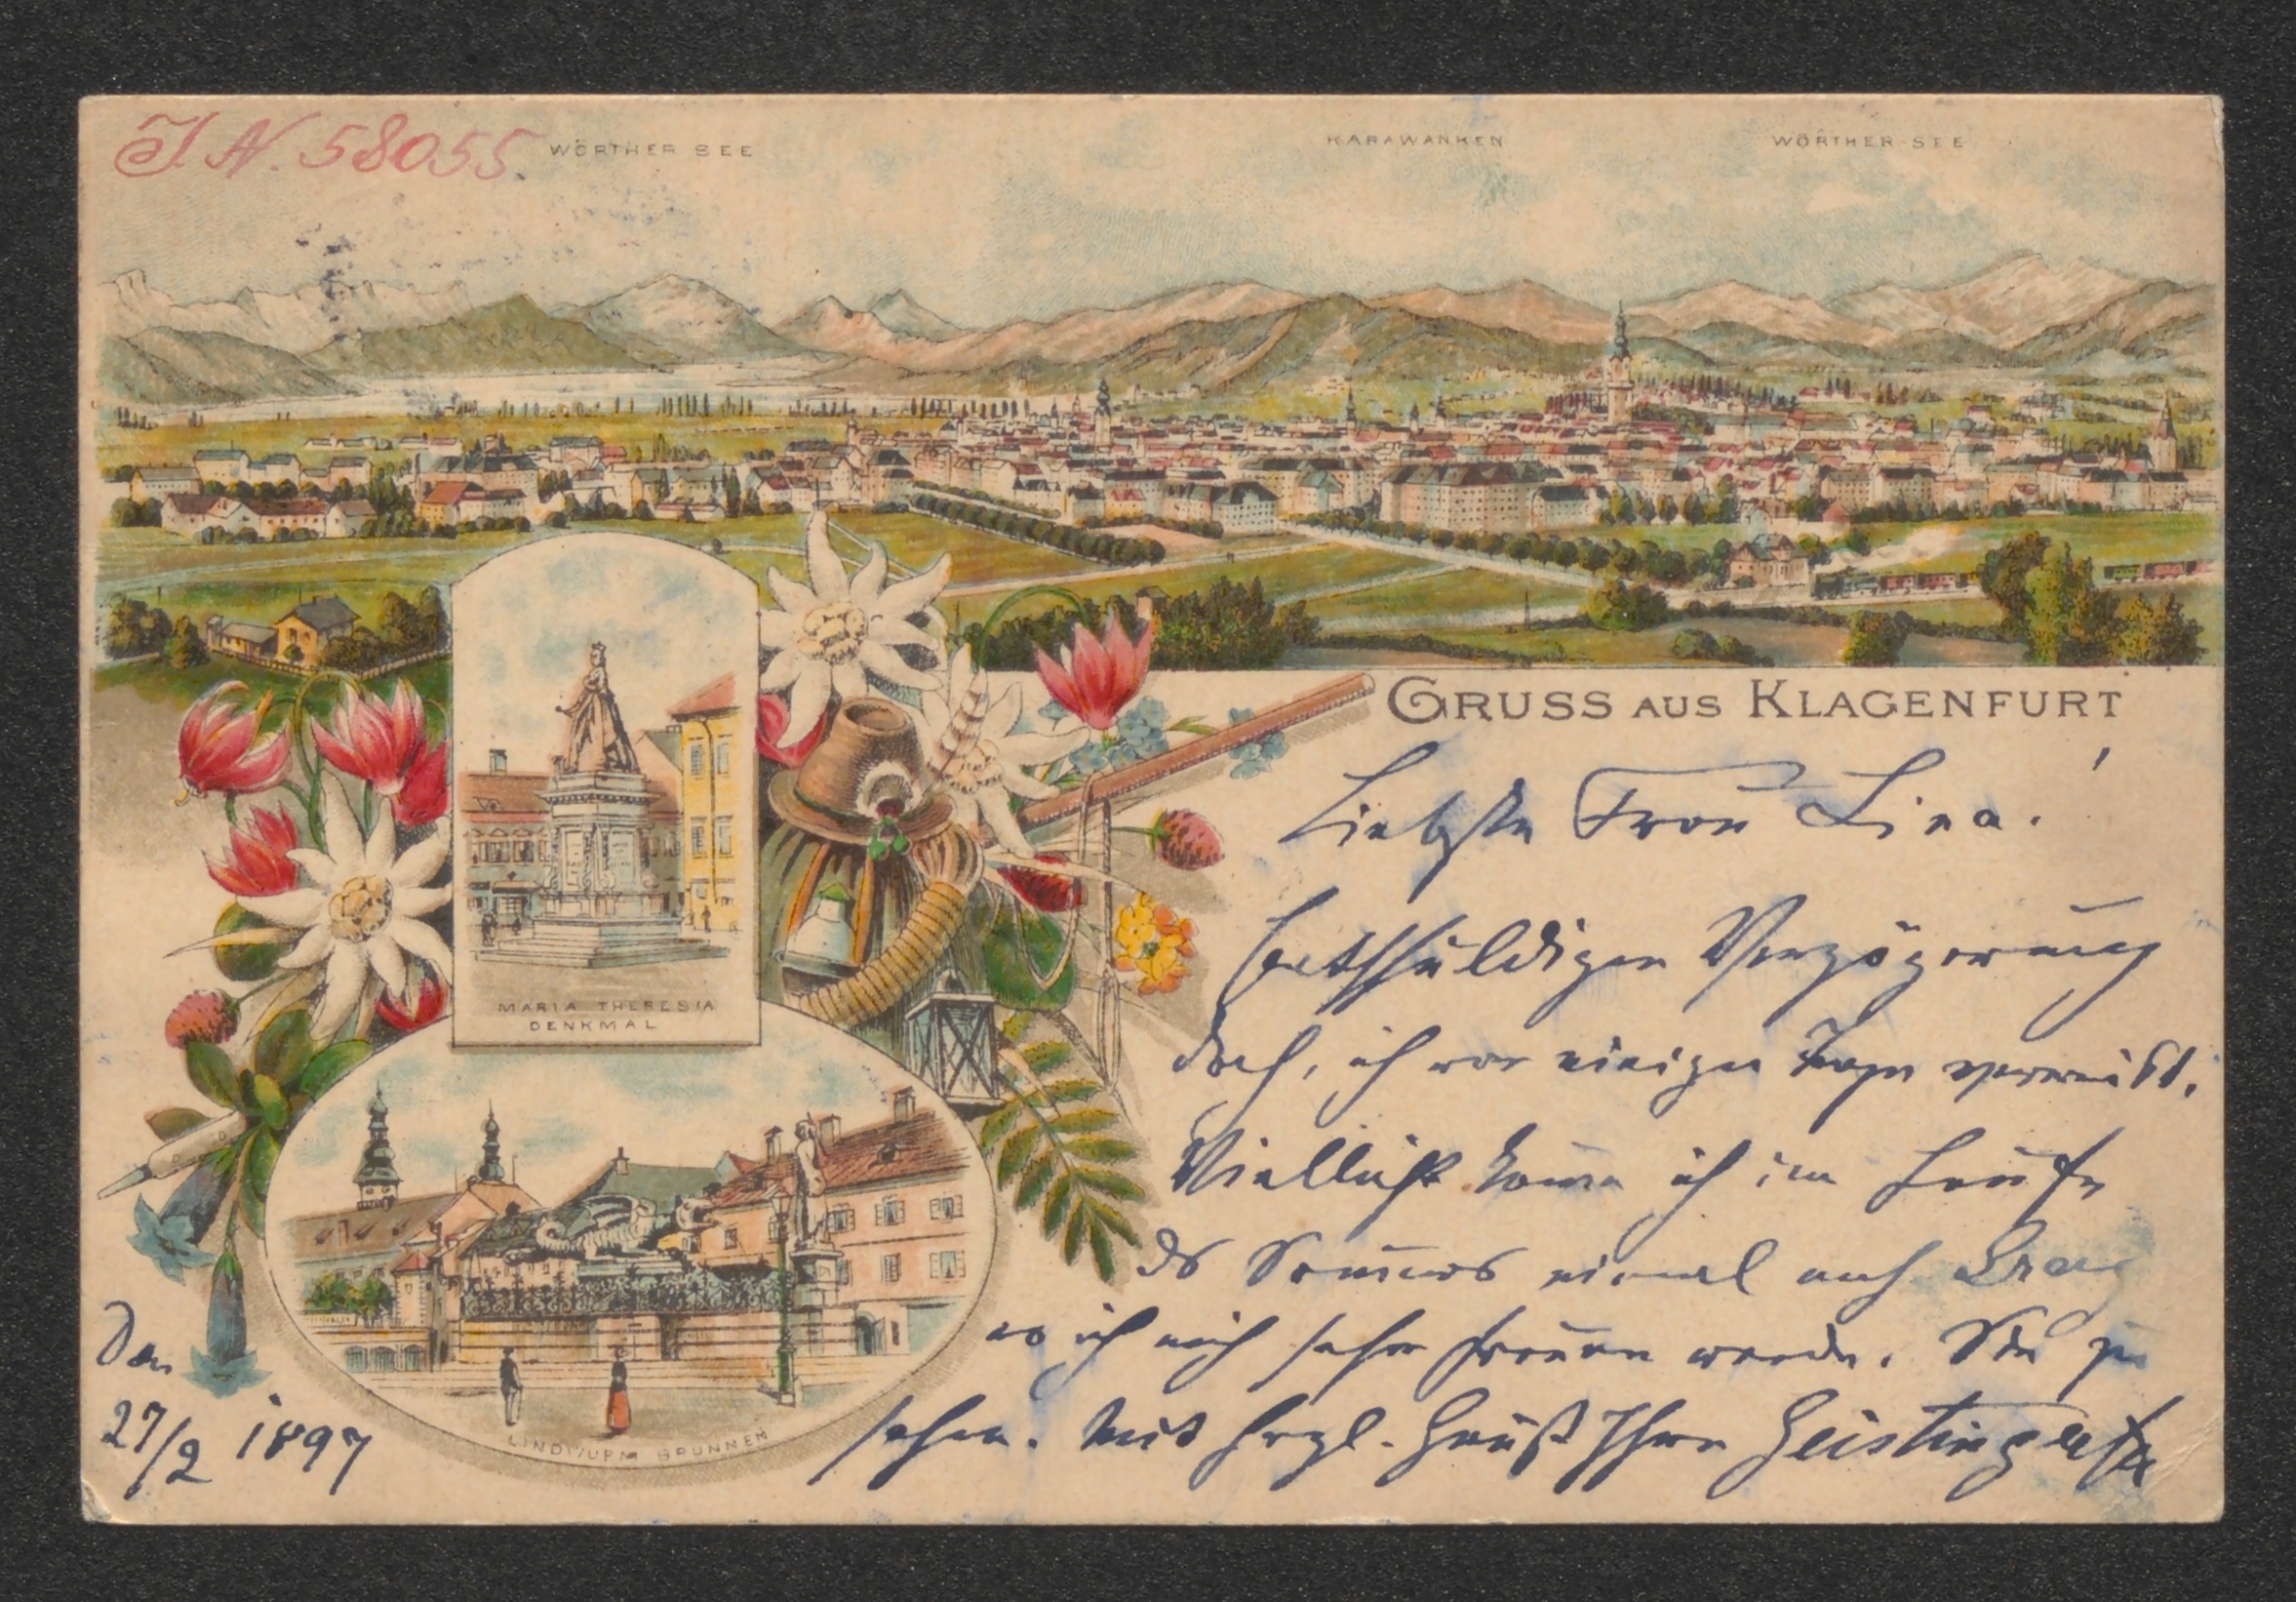 I. N. 58055.
WÖRTHER SEE
KARAWANKEN
WÖRTHER-SEE
GRUSS AUS KLAGENFURT
Liebste Frau Lina!
Entschuldigen Verzögerung
doch, ich war einige Tage verreist.
Vielleicht komme ich im Laufe
des Sommers einmal nach
wo ich mich sehr freuen werde. Sie zu
sehen. Mit herzl. Gruß Ihre Geistinger
MARIA THERESIA
DENKMAL
LINDWURM BRUNNEN
Den
27/2 1897